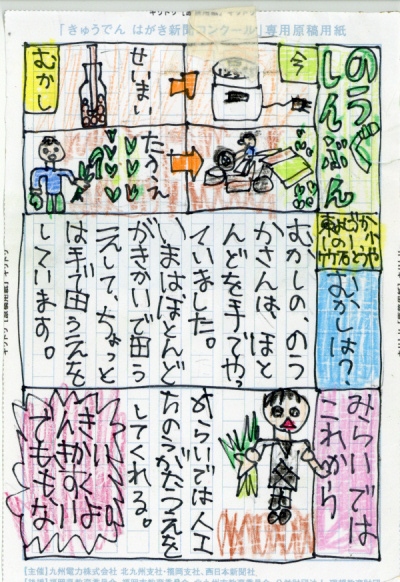 「きゅうでん はがき新聞コンクール」専用原稿用紙
のうぐ
しんぶん
今
せいまい
むかし
たうえ
むかしは?、
むかしの、のう
かさんは、ほと
んどを手でやっ
ていました。
いまはほとんど
がきかいで田う
えして、ちょっと
は手で田うえを
しています。
みらいでは
これから
みらいでは人工
ちのうがたうえを
してくれる。
【主催】九州電力株式会社 北九州支社・福岡支社、西日本新聞社